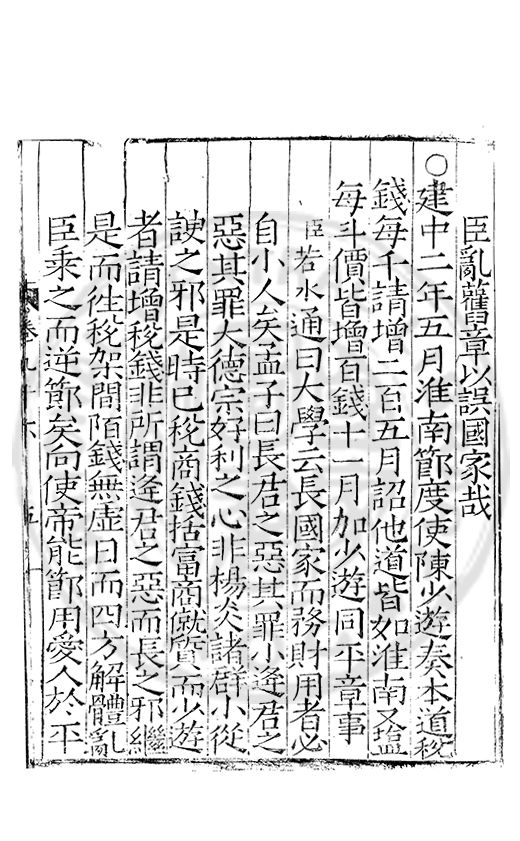 臣亂舊章以誤國家哉
○建中二年五月淮南節度使陳少遊奏本道稅
錢每千請增二百五月詔他道皆如淮南又鹽
每斗價皆增百錢十一月加少遊同平章事
臣若水通曰大學云長國家而務財用者必
自小人矣孟子曰長君之惡其罪小逢君之
惡其罪大德宗好利之心非楊炎諸群小從
諛之邪是時已稅商錢括富商僦質而少遊
者請增稅錢非所謂逢君之惡而長之邪繼
是而徃稅架間陌錢無虛日而四方解體亂
臣乘之而逆節矣向使帝能節用愛人於平